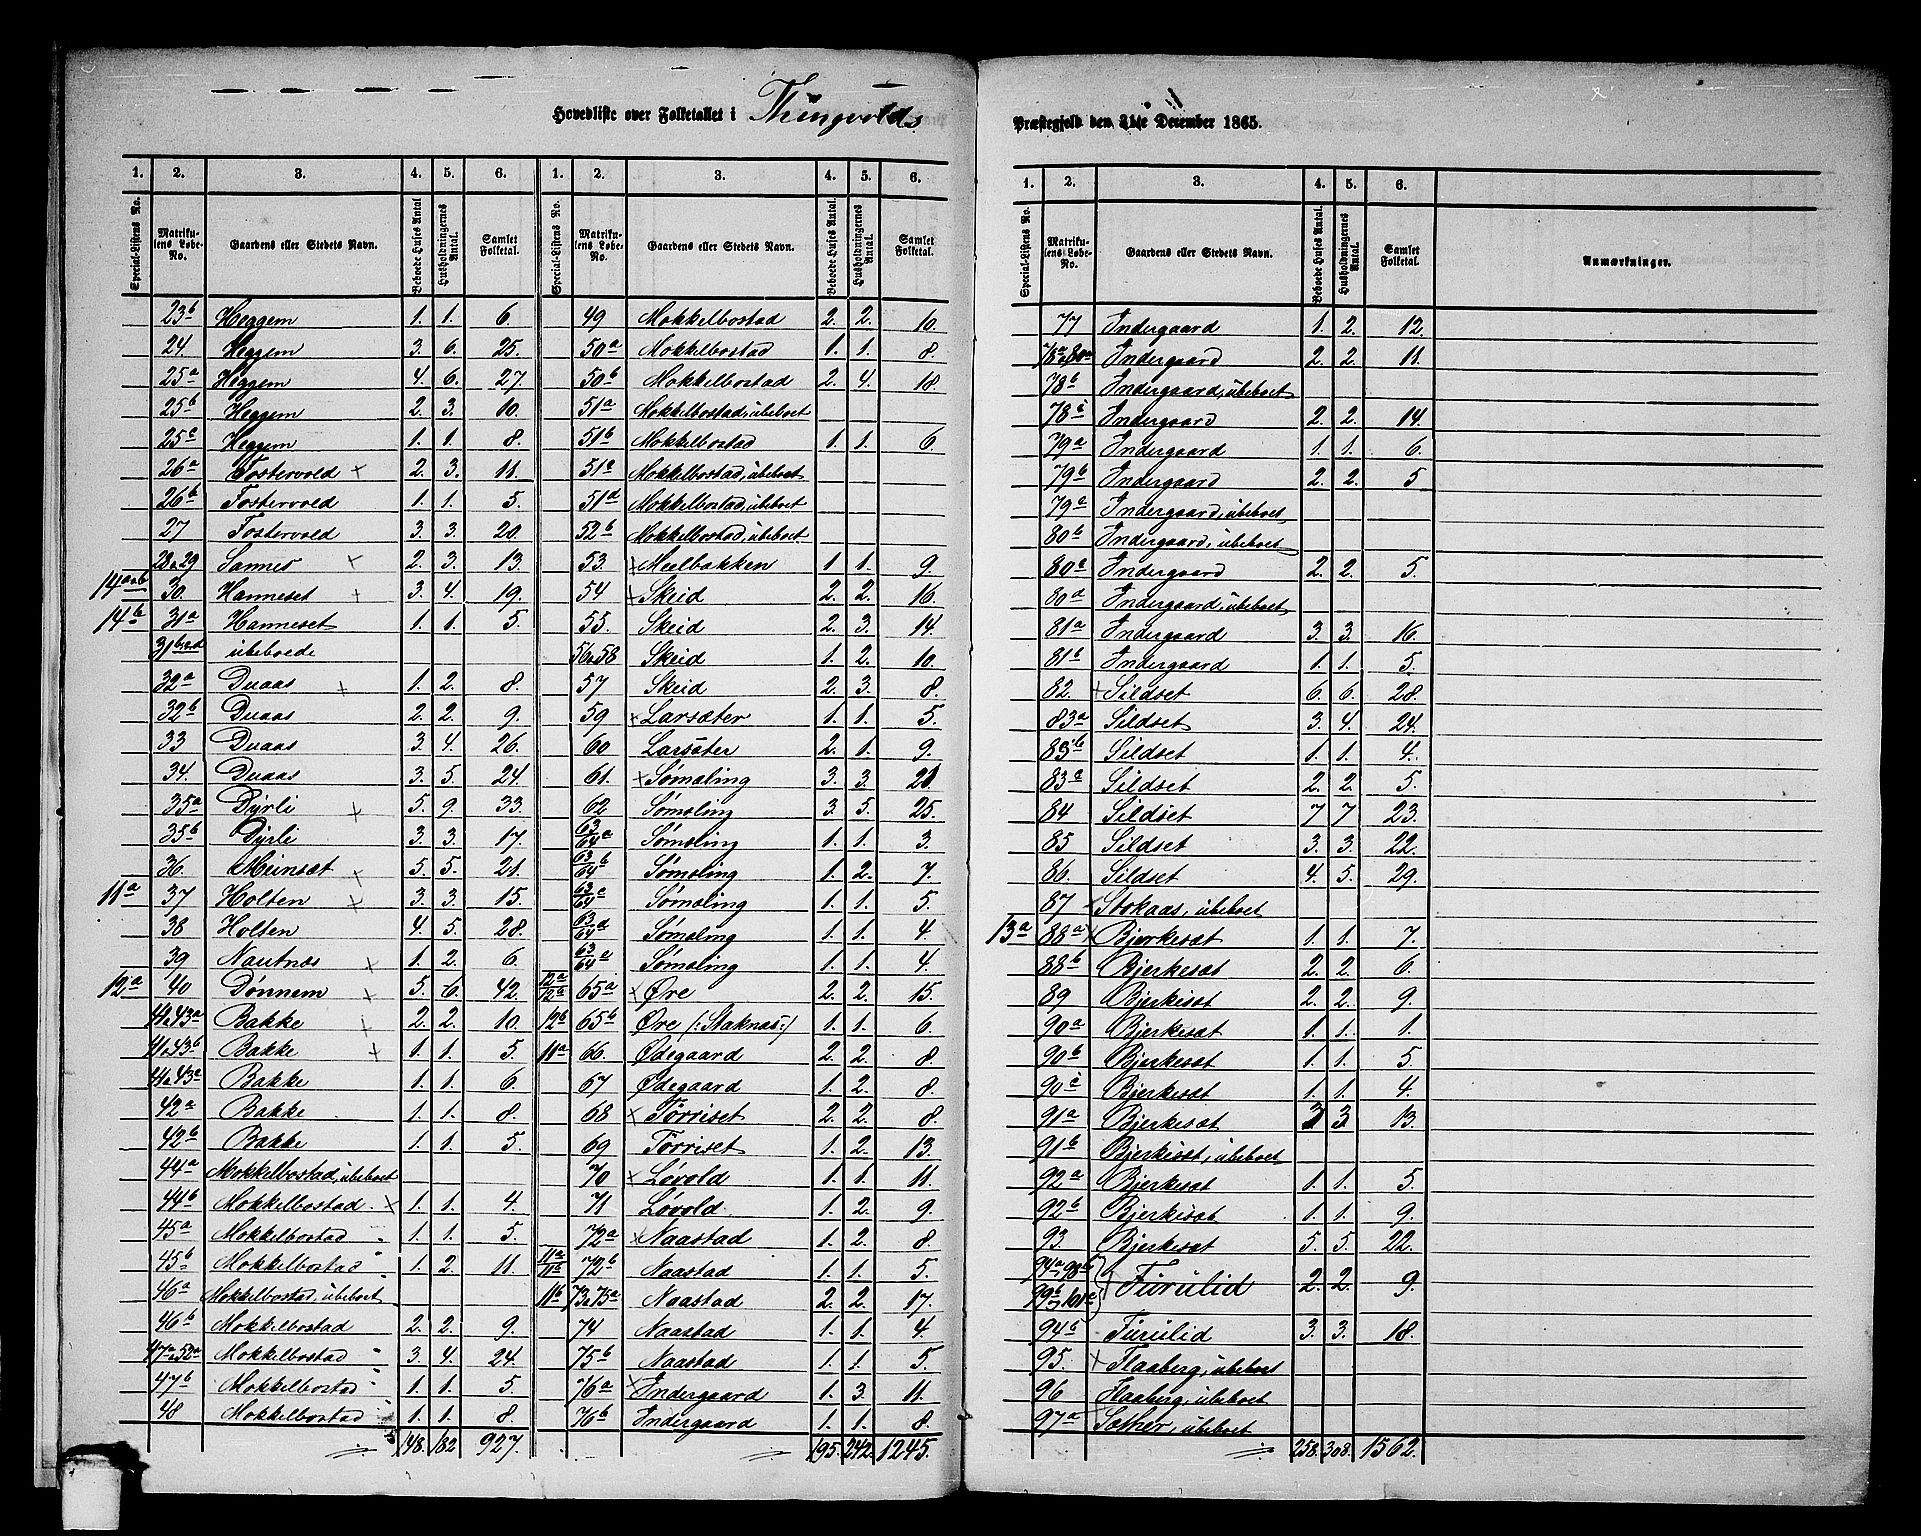 Hovedliste over Folketallet i Thingvolds
1. 2. 3. 4. 5. 6.
Special-Listens No. Matrikulens Løbe-No. Gaardens eller Stedets Navn. Beboede Huses Antal Husholdningernes Antal. Samlet Folketal.
23b Heggem 1. 1. 6.
24. Heggem 3. 6. 25.
25a Heggem 4. 6. 27.
25b Heggem 2. 3. 10.
25c Heggem 1. 1. 8.
26a Fostervold + 2. 3. 11.
26b Fostervold 1. 1. 5.
27 Fostervold 3. 3. 20.
28&29 Sannes + 2. 3. 13.
14a&b 30. Hanneset + 3. 4. 19.
14b 31a Hanneset 1. 1. 5.
ubeboede
32a Duaas + 1. 2. 8.
32b Duaas 2. 2. 9.
33 Duaas 3. 4. 26.
34. Duaas 3. 5. 24.
35a Dyrli + 5. 9. 33.
35b Dyrli 3. 3. 17.
36. Meinsæt + 5. 5. 21.
11a 37 Holten + 3. 3. 15.
38 Holten 4. 5. 28.
39 Nautnæs + 1. 2. 6.
12a 40 Dønnem + 5. 6. 42.
41&43a Bakke + 2. 2. 10.
41&43b Bakke + 1. 1. 5.
41&43c Bakke 1. 1. 6.
42a Bakke 1. 1. 8.
42b Bakke 1. 1. 5.
44a Mokkelbostad, ubeboet
44b Mokkelbostad + 1. 1. 4.
45a Mokkelbostad 1. 1. 5.
45b Mokkelbostad 1. 2. 11.
46a Mokkelbostad, ubeboet
46b Mokkelbostad 2. 2. 9.
47a&52a Mokkelbostad 3. 4. 24.
47b Mokkelbostad 1. 1. 5.
48 Mokkelbostad 1. 1. 8.
148. 182 927.
1. 2. 3. 4. 5. 6.
Special-Listens No. Matrikulens Løbe-No. Gaardens eller Stedets Navn. Beboede Huses Antal. Husholdningernes Antal. Samlet Folketal.
49 Mokkelbostad 2. 2. 10.
50a Mokkelbostad 1. 1. 8.
50b Mokkelbostad 2. 4. 18.
51a Mokkelbostad, ubeboet
51b Mokkelbostad 1. 1. 6.
51c Mokkelbostad, ubeboet
51d Mokkelbostad, ubeboet
52b Mokkelbostad, ubeboet
53. + Meelbakken 1. 1. 9.
54 + Skeid 2. 2. 16.
55. Skeid 2. 3. 14.
56&58 Skeid 1. 2. 10.
57 Skeid 2. 3. 8.
59 + Larsæter 1. 1. 5.
60 Larsæter 2. 1. 9.
61. + Sømøling 3. 3. 21.
62 Sømøling 3. 5. 25.
63/64a Sømøling 1. 1. 3.
63/64b Sømøling 1. 2. 7.
63/64c Sømøling 1. 1. 5.
63/64d Sømøling 1. 1. 4.
63/64e Sømøling 1. 1. 4.
12a/12a 65a + Øre 2. 2. 15.
12b 65b Øre (: Staknæs :) 1. 1. 6.
11a 66. Ødegaard 2. 2. 8.
67 Ødegaard 1. 2. 8.
68 + Torriset 2. 2. 8.
69 Torriset 1. 2. 13.
70 + Løvold 1. 1. 11.
71 Løvold 1. 2. 9.
72a + Naastad 1. 2. 8.
11a/11b 72b Naastad 1. 1. 5.
11b 73&75a Naastad 2. 2. 17.
74 Naastad 1. 1. 4.
75b Naastad 1. 1. 5.
76a + Indergaard 1. 3. 11.
76b Indergaard 1. 1. 8.
195. 242. 1245.
Præstegjeld den 31te December 1865.
1. 2. 3. 4. 5. 6.
Special-Listens No. Matrikulens Løbe-No. Gaardens eller Stedets Navn. Beboede Huses Antal. Husholdningernes Antal. Samlet Folketal. Anmærkninger.
77 Indergaard 1. 2. 12.
78a&80a Indergaard 2. 2. 11.
78b Indergaard, ubeboet
78c Indergaard 2. 2. 14.
79a Indergaard 1. 1. 6.
79b Indergaard 2. 2. 5
79c Indergaard, ubeboet
80b Indergaard, ubeboet
80c Indergaard 2. 2. 5.
80d Indergaard, ubeboet
81a Indergaard 3. 3. 16.
81b Indergaard 1. 1. 5.
82. + Sildset 6. 6. 28.
83a Sildset 3. 4. 24.
83b Sildset 1. 1. 4.
83c Sildset 2. 2. 5.
84 Sildset 7 7 23.
85 Sildset 3. 3. 22.
86. Sildset 4. 5. 29.
87 Stokaas, ubeboet
13a 88a Bjerkesæt 1. 1. 7.
88b Bjerkesæt 2. 2. 6.
89 Bjerkesæt 2. 2. 9.
90a Bjerkesæt 1. 1. 1.
90b Bjerkesæt 1. 1. 5.
90c Bjerkesæt 1. 1. 4.
91a Bjerkesæt 3 3 13.
91b Bjerkesæt, ubeboet
92a Bjerkesæt 1. 1. 5.
92b Bjerkesæt 1. 1. 9.
93. Bjerkesæt 5. 5. 22.
94a, 98b
99b, 101a Furulid 2. 2. 9.
94b Furulid 3. 3. 18.
95. + Flaaberg, ubeboet
96 Flaaberg, ubeboet
97a Sæther, ubeboet
258. 308. 1562.